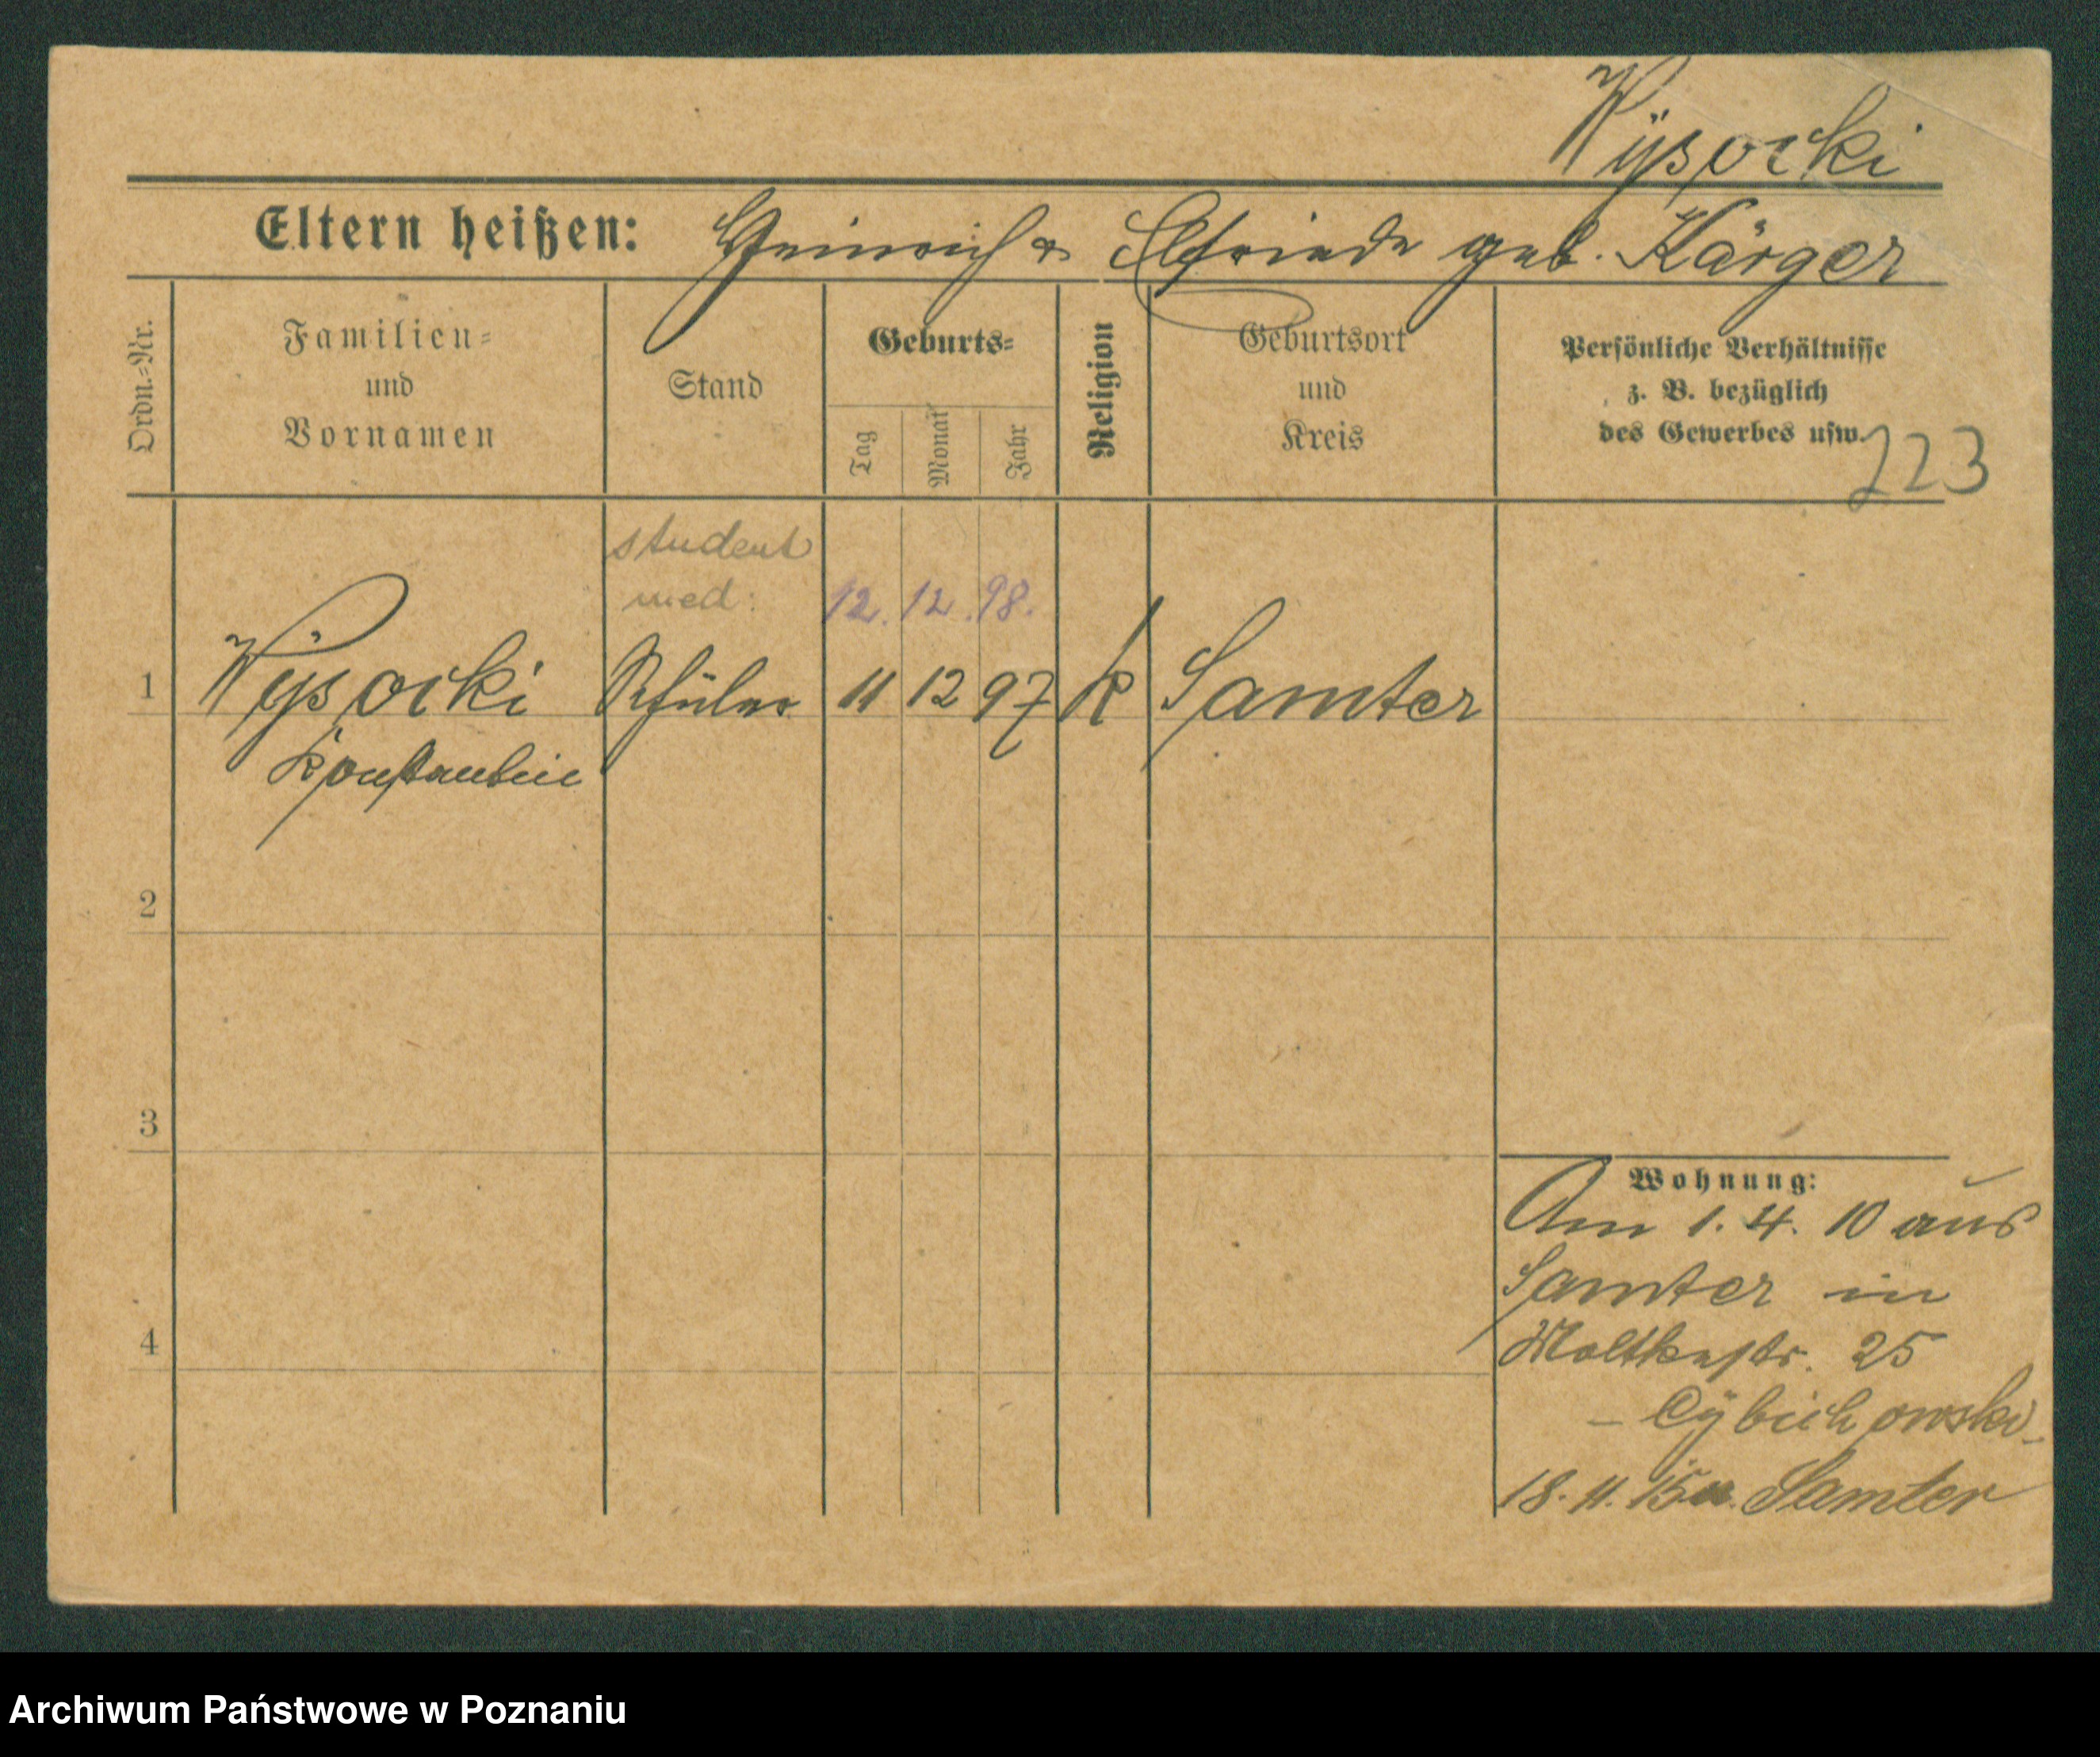 Wÿsocki
Eltern heißen: Heinrich & Elfriede geb. Kärger
Ordn.=Nr.
Familien=
und
Vornamen
Stand
Geburts=
Tag
Monat
Jahr
Religion
Geburtsort
und
Kreis
Persönliche Verhältnisse
z. B. bezüglich
des Gewerbes usw.
223
student
med. 12. 12. 98.
1 Wÿsocki Schüler 11 12 97 k Samter
Konstantin
2
3
4
Wohnung:
Am 1. 4. 10 aus
Samter in
Moltkestr. 25
– Cÿbichowski –
18. 11. 15 n. Samter
Archiwum Państwowe w Poznaniu